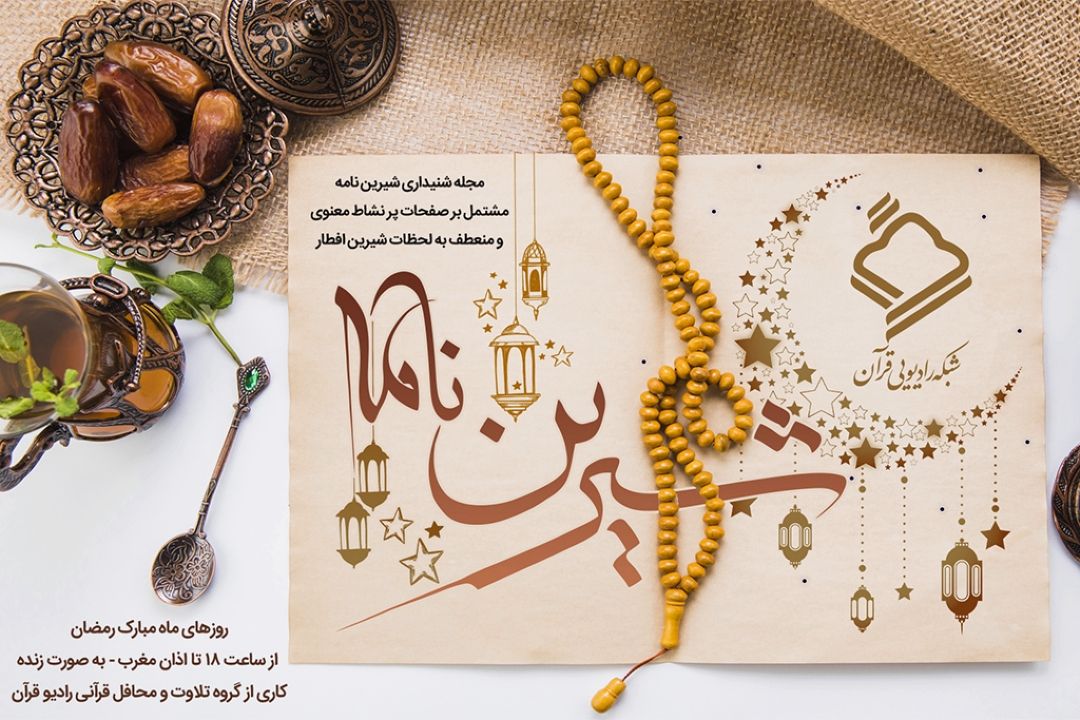 مجله شنیداری شیرین نامه
مشتمل بر صفحات پر نشاط معنوی
و منعطف به لحظات شیرین افطار
شبکه رادیویی قرآن
شیرین ناما
روزهای ماه مبارک رمضان
از ساعت ۱۸ تا اذان مغرب - به صورت زنده
کاری از گروه تلاوت و محافل قرآنی رادیو قرآن